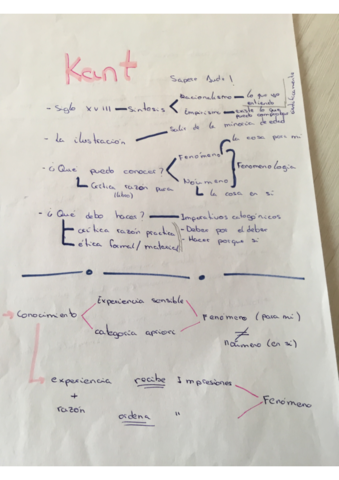 Kant
Sapere Aude!
- Siglo XVIII — Síntesis
Racionalismo — lo que yo entiendo
Empirismo — existe lo que puedo comprobar
- la ilustración
Salir de la minoría de edad
la cosa para mi
- ¿Que puedo conocer?
Fenómeno
Noúmeno
Fenomenología
Crítica razón pura
(libro)
la cosa en si
- ¿Qué debo hacer? — Imperativos categóricos
crítica razón practica
- Deber por el deber
ética formal/material
- Hacer porque si
Experiencia sensible
Conocimiento
Fenómeno (para mi)
categoría apriori
≠
noúmeno (en si)
experiencia recibe Impresiones
+
Fenómeno
razón ordena "